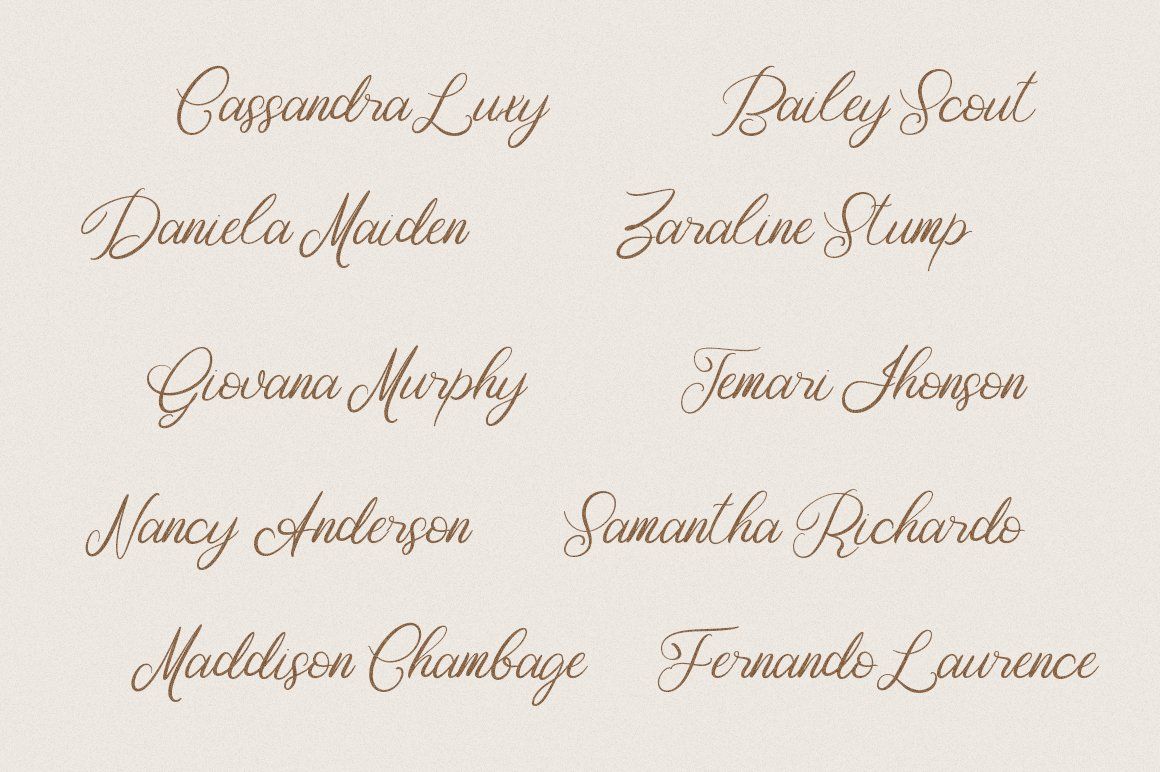 Cassandra Luxy Bailey Scout
Daniela Maiden Zaraline Stump
Giovana Murphy Temari Jhonson
Nancy Anderson Samantha Richardo
Maddison Chambage Fernando Laurence